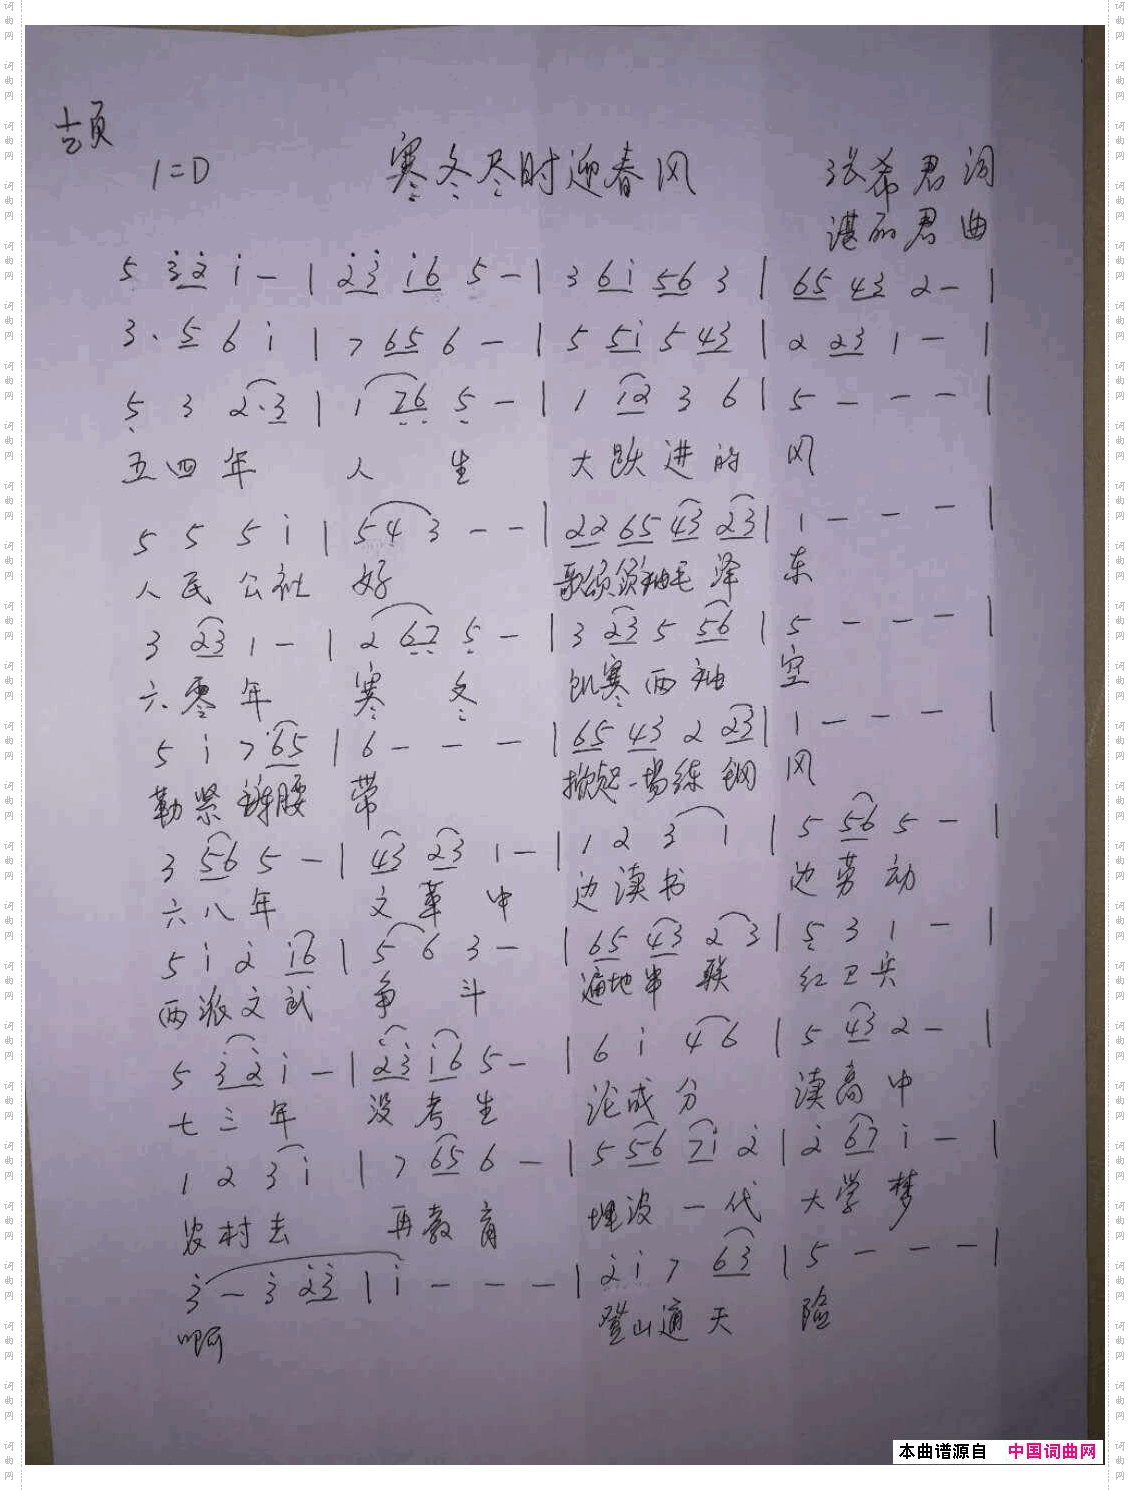 1=D 寒冬尽时迎春风 张希君词
湛丽君曲
5 3̇2̇ 1̇ - | 2̇3̇ 1̇6 5 - | 3 61̇ 56 3 | 65 43 2 - |
3· 5 6 1̇ | 7 65 6 - | 5 51̇ 5 43 | 2 23 1 - |
5̣ 3 2·3 | 1 7̣6̣ 5̣ - | 1 12 3 6 | 5 - - - |
五四年 人生 大跃进的 风
5 5 5 1̇ | 5 4 3 - - | 22 65 43 23 | 1 - - - |
人民公社 好 歌颂领袖毛泽 东
3 23 1 - | 2 6̣7̣ 5̣ - | 3 23 5 56 | 5 - - - |
六零年 寒冬 饥寒两袖 空
5 1̇ 7 65 | 6 - - - | 65 43 2 23 | 1 - - - |
勒紧 腰 带 掀起一场练钢 风
3 56 5 - | 43 23 1 - | 1 2 3 1 | 5 56 5 - |
六八年 文革中 边读书 边劳动
5 1̇ 2̇ 1̇6 | 5 6 3 - | 65 43 2 3 | 5̣ 3 1 - |
两派文武 争斗 遍地串联 红卫兵
5 3̇2̇ 1̇ - | 2̇3̇ 1̇6 5 - | 6 1̇ 4 6 | 5 43 2 - |
七三年 没考生 论成分 读高中
1 2 3 1̇ | 7 65 6 - | 5 56 71̇ 2̇ | 2̇ 67 1̇ - |
农村去 再教育 埋没一代 大学梦
3̇ - 3̇ 2̇3̇ | 1̇ - - - | 2̇ 1̇ 7 63 | 5 - - - |
啊 登山通天 险
本曲谱源自 中国词曲网